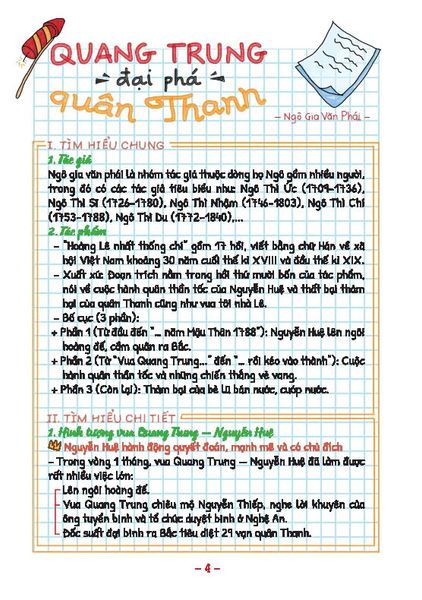 QUANG TRUNG
đại phá
quân Thanh
– Ngô Gia Văn Phái –
I. TÌM HIỂU CHUNG
1. Tác giả
Ngô gia văn phái là nhóm tác giả thuộc dòng họ Ngô gồm nhiều người,
trong đó có các tác giả tiêu biểu như: Ngô Thì Ức (1709-1736),
Ngô Thì Sĩ (1726-1780), Ngô Thì Nhậm (1746-1803), Ngô Thì Chí
(1753-1788), Ngô Thì Du (1772-1840),...
2. Tác phẩm
– "Hoàng Lê nhất thống chí" gồm 17 hồi, viết bằng chữ Hán về xã
hội Việt Nam khoảng 30 năm cuối thế kỉ XVIII và đầu thế kỉ XIX.
– Xuất xứ: Đoạn trích nằm trong hồi thứ mười bốn của tác phẩm,
nói về cuộc hành quân thần tốc của Nguyễn Huệ và thất bại thảm
hại của quân Thanh cũng như vua tôi nhà Lê.
– Bố cục (3 phần):
+ Phần 1 (Từ đầu đến "... năm Mậu Thân 1788"): Nguyễn Huệ lên ngôi
hoàng đế, cầm quân ra Bắc.
+ Phần 2 (Từ "Vua Quang Trung..." đến "... rồi kéo vào thành"): Cuộc
hành quân thần tốc và những chiến thắng vẻ vang.
+ Phần 3 (Còn lại): Thảm bại của bè lũ bán nước, cướp nước.
II. TÌM HIỂU CHI TIẾT
1. Hình tượng vua Quang Trung – Nguyễn Huệ
Nguyễn Huệ hành động quyết đoán, mạnh mẽ và có chủ đích
– Trong vòng 1 tháng, vua Quang Trung – Nguyễn Huệ đã làm được
rất nhiều việc lớn:
Lên ngôi hoàng đế.
Vua Quang Trung chiêu mộ Nguyễn Thiếp, nghe lời khuyên của
ông tuyển binh và tổ chức duyệt binh ở Nghệ An.
Đốc suất đại binh ra Bắc tiêu diệt 29 vạn quân Thanh.
– 4 –